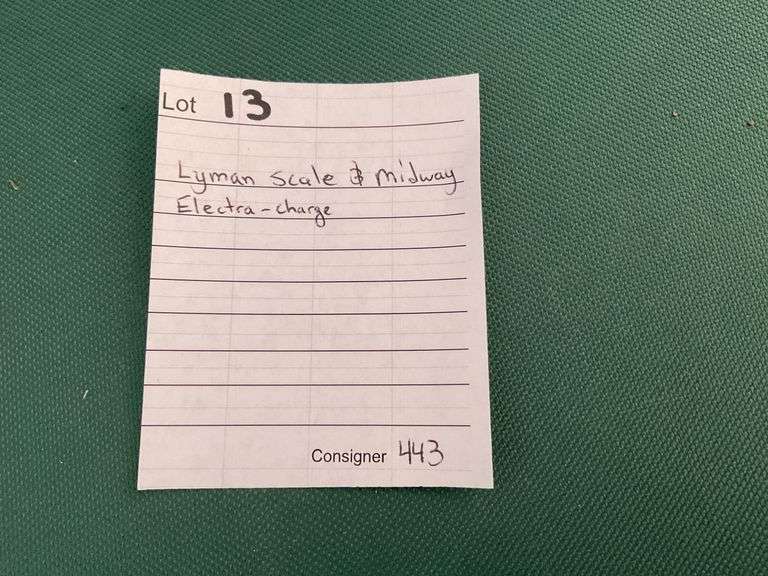 Lot 13
Lyman Scale & Midway
Electra-charge
Consigner 443